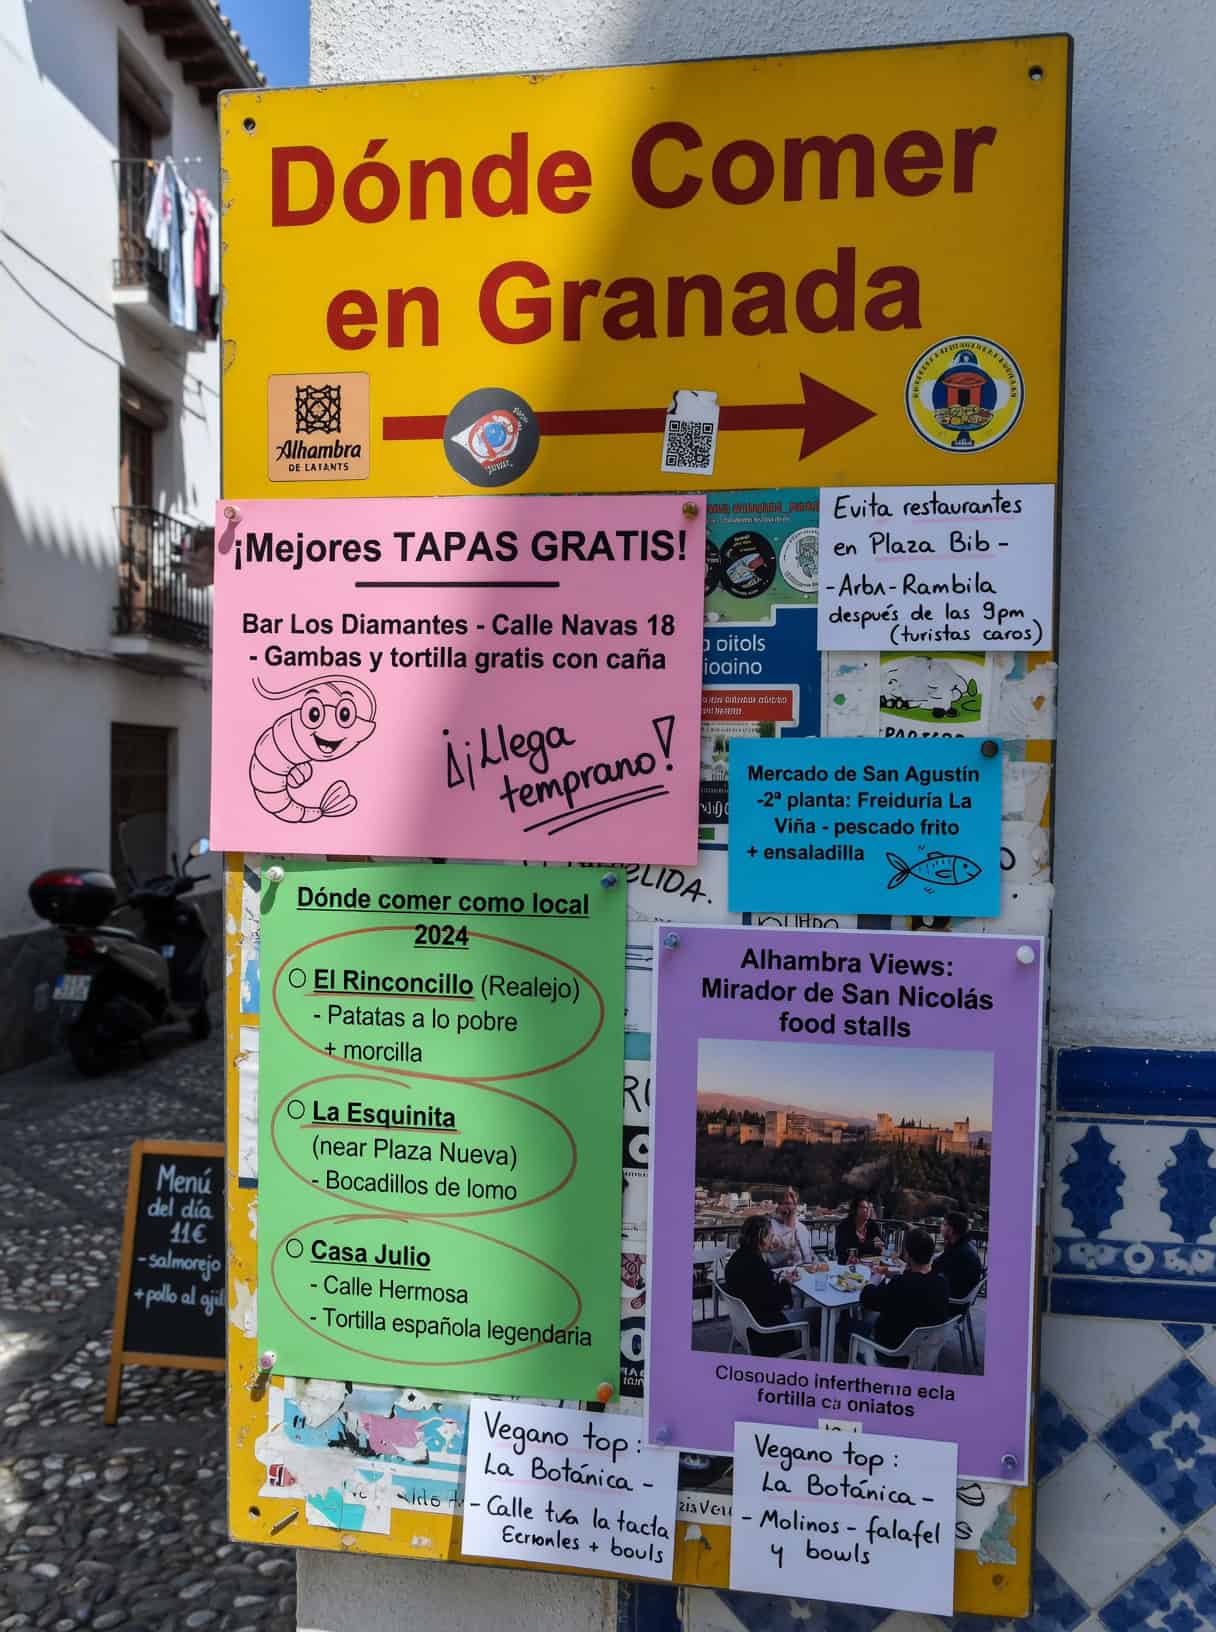 Dónde Comer
en Granada
Alhambra
DE LATANTS
¡Mejores TAPAS GRATIS!
Bar Los Diamantes - Calle Navas 18
- Gambas y tortilla gratis con caña
¡¡Llega
temprano!
Evita restaurantes
en Plaza Bib -
- Arbʌ - Rambila
después de las 9pm
(turistas caros)
a oitols
ioaino
Mercado de San Agustín
-2ª planta: Freiduría La
Viña - pescado frito
+ ensaladilla
ELIDA.
Dónde comer como local
2024
El Rinconcillo (Realejo)
- Patatas a lo pobre
+ morcilla
La Esquinita
(near Plaza Nueva)
- Bocadillos de lomo
Casa Julio
- Calle Hermosa
- Tortilla española legendaria
Alhambra Views:
Mirador de San Nicolás
food stalls
Closouado infertherna ecla
fortilla ca oniatos
Menú
del día
11€
- salmorejo
+ pollo al ajil
Vegano top:
La Botánica -
- Calle la tacta
+ bouls
Vegano top:
La Botánica -
- Molinos - falafel
y bowls